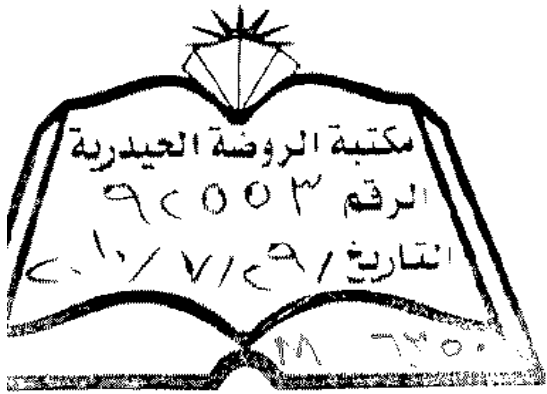 مكتبة الروضة الحيدرية
الرقم ٩٢٥٥٣
التاريخ / ٢٩ / ٧ / ٢٠١٠